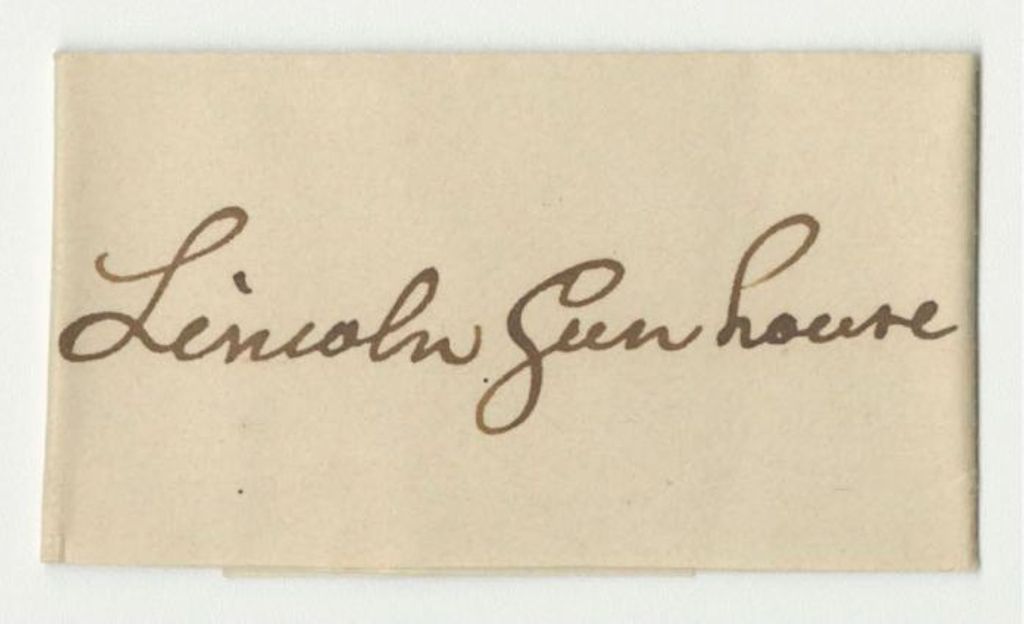 Lincoln Gun house